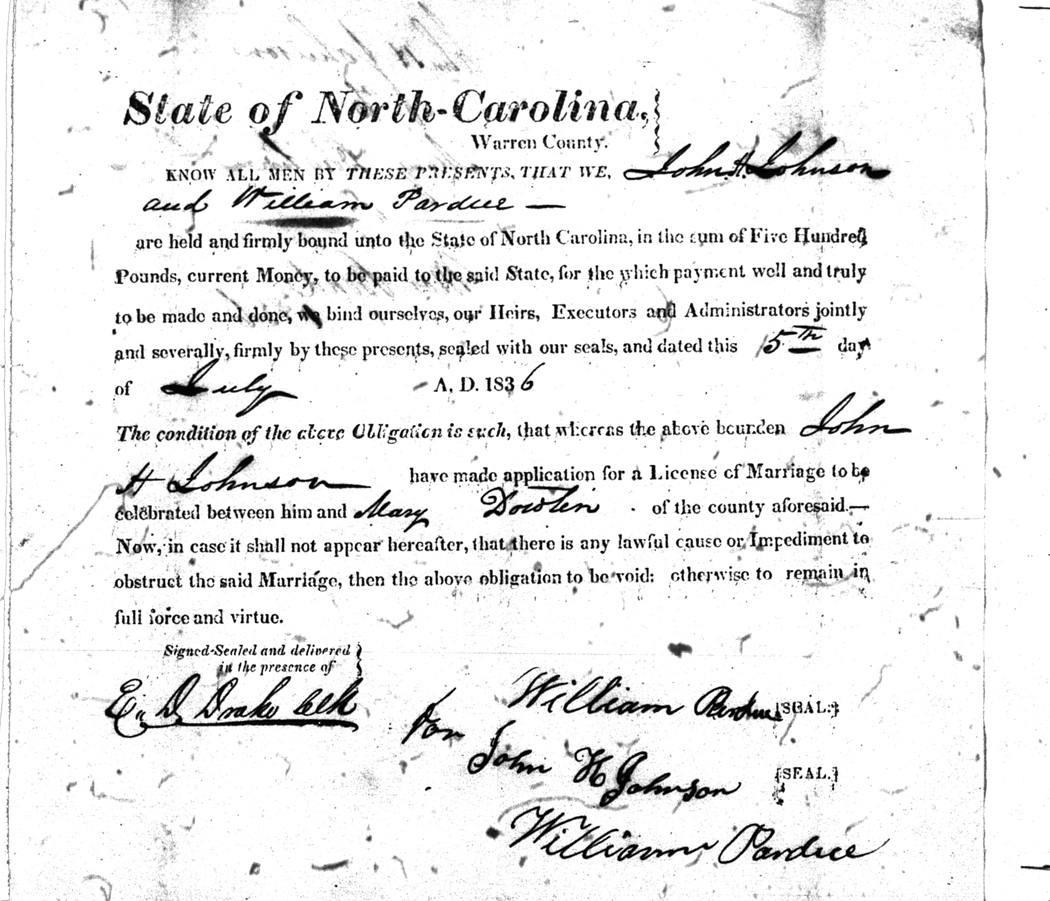 State of North-Carolina,
Warren County.
KNOW ALL MEN BY THESE PRESENTS, THAT WE, John H. Johnson
and William Pardue —
are held and firmly bound unto the State of North Carolina, in the sum of Five Hundred
Pounds, current Money, to be paid to the said State, for the which payment well and truly
to be made and done, we bind ourselves, our Heirs, Executors and Administrators jointly
and severally, firmly by these presents, sealed with our seals, and dated this 15th day
of July A, D. 1836
The condition of the above Obligation is such, that whereas the above bounden John
H Johnson have made application for a License of Marriage to be
celebrated between him and Mary Dowlin of the county aforesaid.—
Now, in case it shall not appear hereafter, that there is any lawful cause or Impediment to
obstruct the said Marriage, then the above obligation to be void: otherwise to remain in
full force and virtue.
Signed-Sealed and delivered
in the presence of
E. D. Drake clk
William Pardue [SEAL.]
for
John H Johnson [SEAL.]
William Pardue